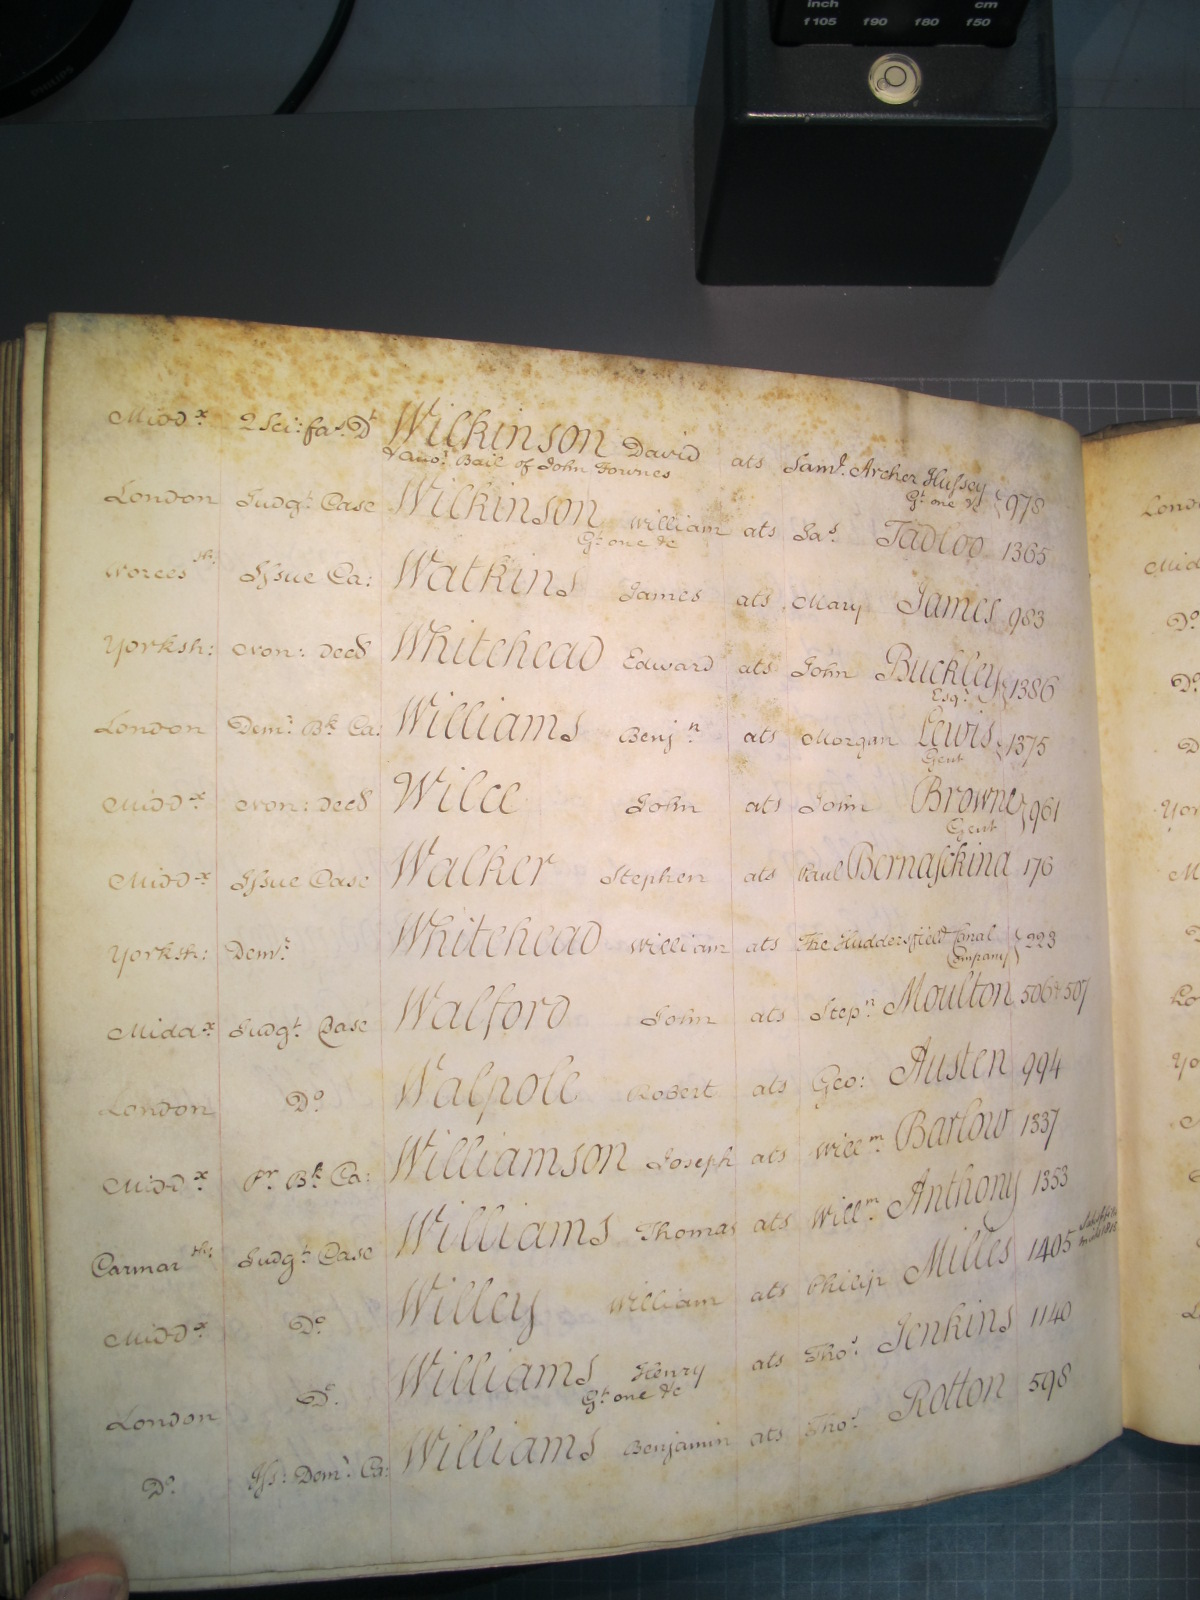 inch cm
f105 f90 f80 f50
PHILIPS
Midd.x 2 Sci: fa.s Dt Wilkinson David ats Saml. Archer Hussey 978
& Ano.r Bail of John Townes Gt. one &c
London Judgt. Case Wilkinson William ats Jas. Tadloo 1365
Gt. one &c
Worces sh: Issue Ca: Watkins James ats Mary James 983
Yorksh: Non: Decd Whitehead Edward ats John Buckley 1386
Esqr.
London Demr. Bk. Ca: Williams Benjn. ats Morgan Lewis 1375
Gent
Midd.x Non: Decd Wilce John ats John Browne 961
Gent
Midd.x Issue Case Walker Stephen ats Paul Bernasckina 176
Yorksh: Demr. Whitehead William ats The Huddersfield Canal 223
Company
Midd.x Judgt. Case Walford John ats Stepn. Moulton 506 & 507
London Do. Walpole Robert ats Geo: Austen 994
Midd.x Pr. Bk. Ca: Williamson Joseph ats Willm. Barlow 1337
Carmar sh: Judgt. Case Williams Thomas ats Willm. Anthony 1353
Midd.x Do. Willey William ats Philip Milles 1405
London Do. Williams Henry ats Thos. Jenkins 1140
Gt. one &c
Do. Iss: Demr. Ca: Williams Benjamin ats Thos. Rotton 598